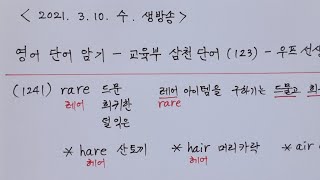 < 2021. 3. 10. 수. 생방송 >
영어 단어 암기 - 교육부 삼천단어 (123) - 우프선생
(1241) rare 드문 레어 아이템을 구하기는 드물고 희
레어 희귀한 rare
덜 익은
* hare 산토끼 * hair 머리카락 * air
헤어 헤어